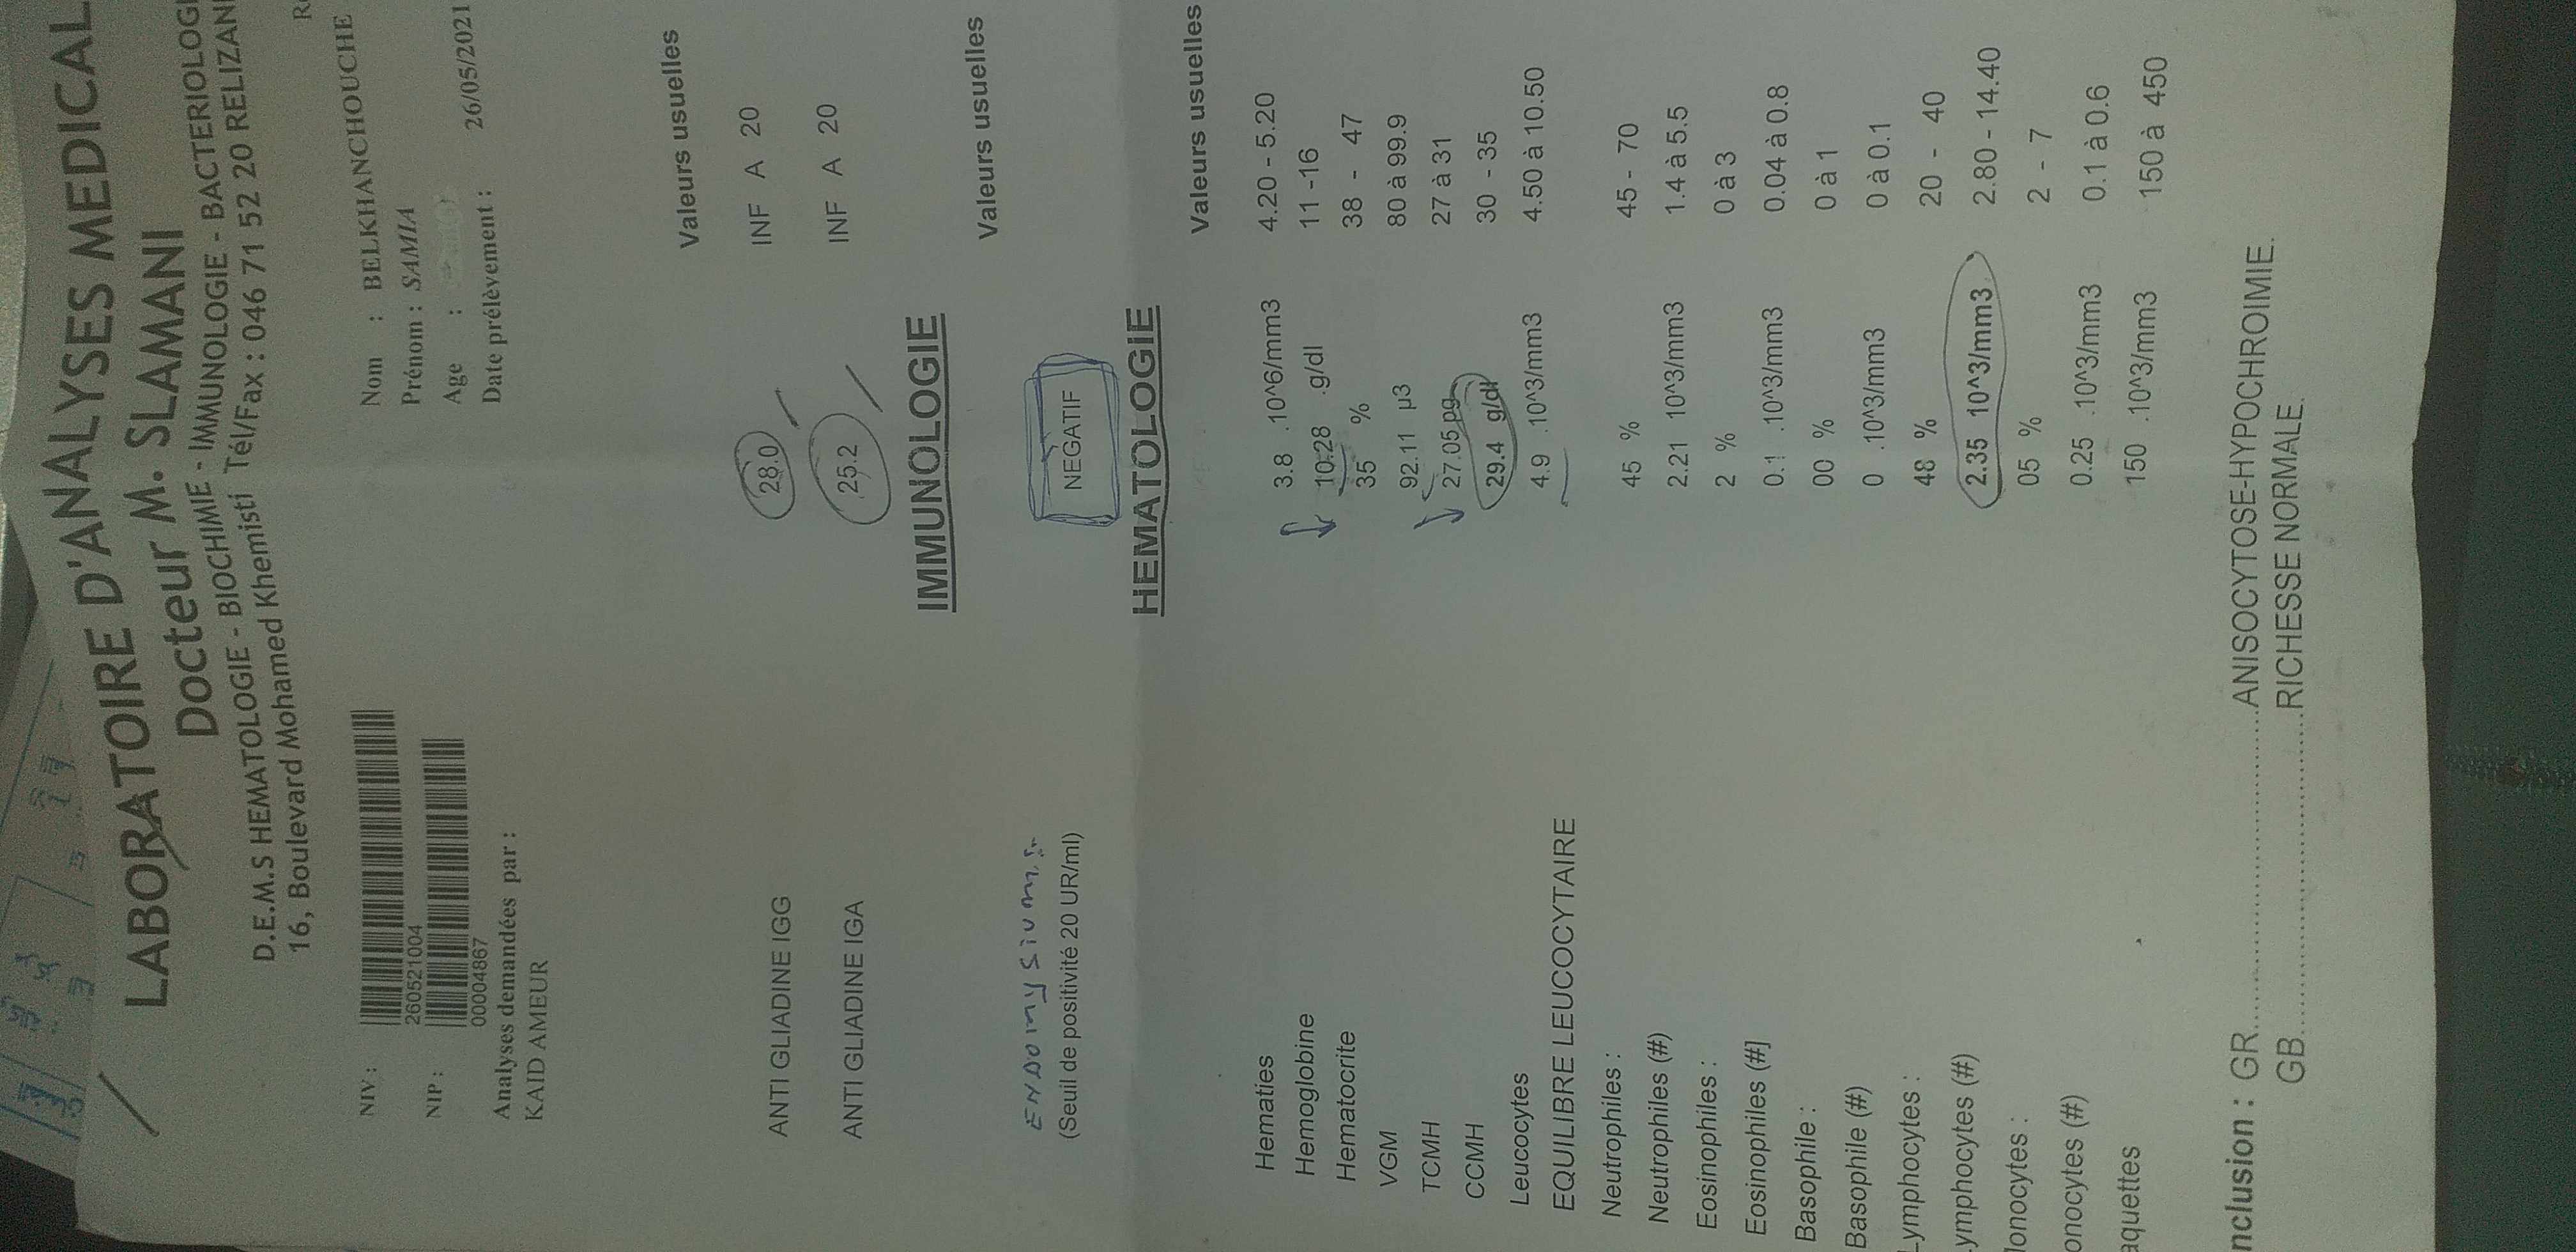 LABORATOIRE D'ANALYSES MEDICAL
Docteur M. SLAMANI
D.E.M.S HEMATOLOGIE - BIOCHIMIE - IMMUNOLOGIE - BACTERIOLOGI
16, Boulevard Mohamed Khemisti Tél/Fax : 046 71 52 20 RELIZAN
NIV : 260521004
NIP : 00004867
Nom : BELKHANCHOUCHE
Prénom : SAMIA
Age :
Date prélèvement : 26/05/2021
Analyses demandées par :
KAID AMEUR
Valeurs usuelles
ANTI GLIADINE IGG 28.0 INF A 20
ANTI GLIADINE IGA 25.2 INF A 20
IMMUNOLOGIE
Valeurs usuelles
NEGATIF
(Seuil de positivité 20 UR/ml)
HEMATOLOGIE
Valeurs usuelles
Hematies 3.8 .10^6/mm3 4.20 - 5.20
Hemoglobine 10.28 .g/dl 11 -16
Hematocrite 35 % 38 - 47
VGM 92.11 µ3 80 à 99.9
TCMH 27.05 pg 27 à 31
CCMH 29.4 g/dl 30 - 35
Leucocytes 4.9 .10^3/mm3 4.50 à 10.50
EQUILIBRE LEUCOCYTAIRE
Neutrophiles : 45 % 45 - 70
Neutrophiles (#) 2.21 10^3/mm3 1.4 à 5.5
Eosinophiles : 2 % 0 à 3
Eosinophiles (#] 0.1 .10^3/mm3 0.04 à 0.8
Basophile : 00 % 0 à 1
Basophile (#) 0 .10^3/mm3 0 à 0.1
Lymphocytes : 48 % 20 - 40
ymphocytes (#) 2.35 10^3/mm3 2.80 - 14.40
lonocytes : 05 % 2 - 7
onocytes (#) 0.25 .10^3/mm3 0.1 à 0.6
aquettes 150 .10^3/mm3 150 à 450
nclusion : GR..............................ANISOCYTOSE-HYPOCHROIMIE.
GB..............................RICHESSE NORMALE.